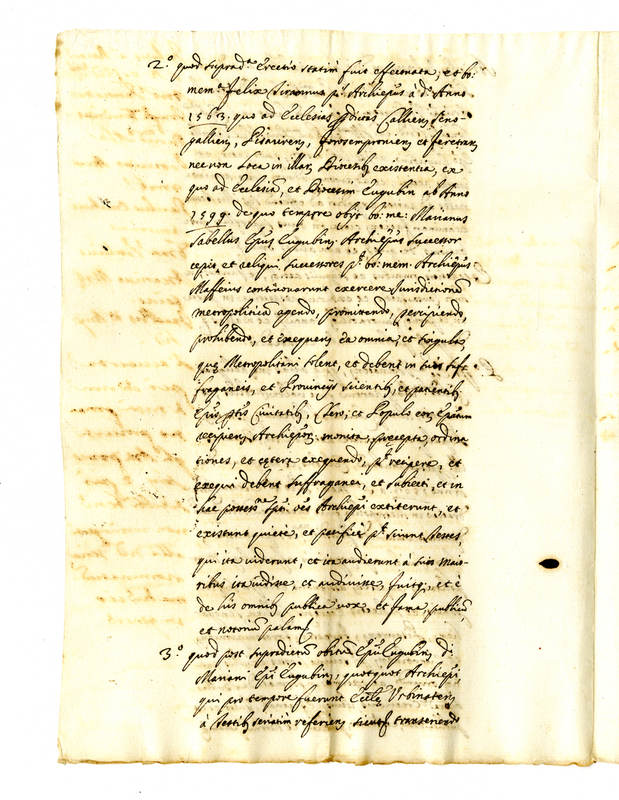 2.º quod suprad.ª Erectio statim fuit effectuata, et bo:
mem: Felix Tirannus p.s Archiepus à d.º Anno
1563. quo ad Ecclesias pdictas Callien, Seno
gallien, Pisaurien, forosempronien, et feretran
nec non loca in illar Diocesib existentia, ex
quo ad Ecclesia, et Diocesim Eugubin ab Anno
1599. de quo tempore obijt bo: me: Marianus
Sabellus Epus Eugubin, Archiepus successor
cepit et reliqui successores p.t bo: mem. Archiepus
Maffeius continuarunt exercere Jurisdictione
metropolitica agendo, promittendo, percipiendo,
prohibendo, et exequen ea omnia, et singula,
que Metropolitani solent, et debent in suis suf
fraganeis, et Provincijs scientib, et patientib
Epis ptis Civitatib, Clero, et Populo
recipien Archiepor monita, precepta, ordina
tiones, et cetera exequendo, p.t recipere, et
exequi debent suffraganei, et subiecti, et in
hac possess.ne spti. Archiepi extiterunt, et
existunt quietè, et pacificè p.t sciunt Testes
qui ita viderunt, et ita audierunt à suis maio
ribus ita vidisse, et audivisse, fuitq; et è
de his omnib publica vox, et fama, publicu,
et notoriu palam
3.º quod post supradictum obitum Epi Eugubin, d.
Mariani Epi Eugubin, quotquot Archiepi,
qui pro tempore fuerunt Eccle Urbinaten,
à Testib seriatim referien, transeundo